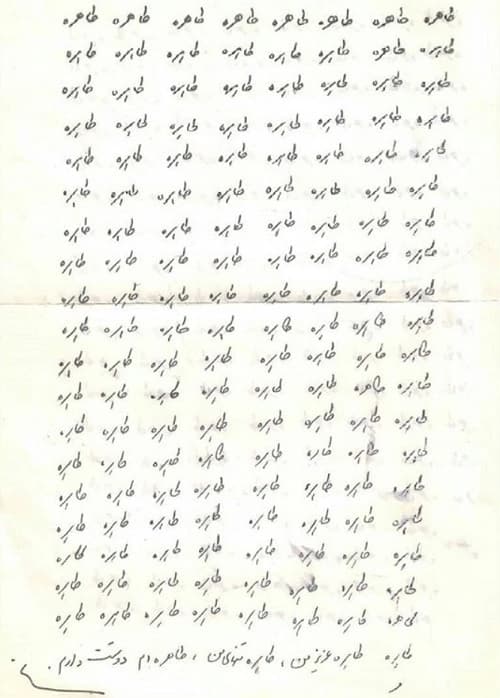 طاهره طاهره طاهره طاهره طاهره طاهره طاهره طاهره
طاهره طاهره طاهره طاهره طاهره طاهره طاهره طاهره
طاهره طاهره طاهره طاهره طاهره طاهره طاهره طاهره
طاهره طاهره طاهره طاهره طاهره طاهره طاهره طاهره
طاهره طاهره طاهره طاهره طاهره طاهره طاهره طاهره
طاهره طاهره طاهره طاهره طاهره طاهره طاهره طاهره
طاهره طاهره طاهره طاهره طاهره طاهره طاهره طاهره
طاهره طاهره طاهره طاهره طاهره طاهره طاهره طاهره
طاهره طاهره طاهره طاهره طاهره طاهره طاهره طاهره
طاهره طاهره طاهره طاهره طاهره طاهره طاهره طاهره
طاهره طاهره طاهره طاهره طاهره طاهره طاهره طاهره
طاهره طاهره طاهره طاهره طاهره طاهره طاهره طاهره
طاهره طاهره طاهره طاهره طاهره طاهره طاهره طاهره
طاهره طاهره طاهره طاهره طاهره طاهره طاهره طاهره
طاهره طاهره طاهره طاهره طاهره طاهره طاهره طاهره
طاهره طاهره طاهره طاهره طاهره طاهره طاهره طاهره
طاهره طاهره طاهره طاهره طاهره طاهره طاهره طاهره
طاهره طاهره طاهره طاهره طاهره طاهره طاهره طاهره
طاهره طاهره طاهره طاهره طاهره طاهره طاهره طاهره
طاهره طاهره عزیز من ، طاهره تنهای من ، طاهره ام دوستت دارم .